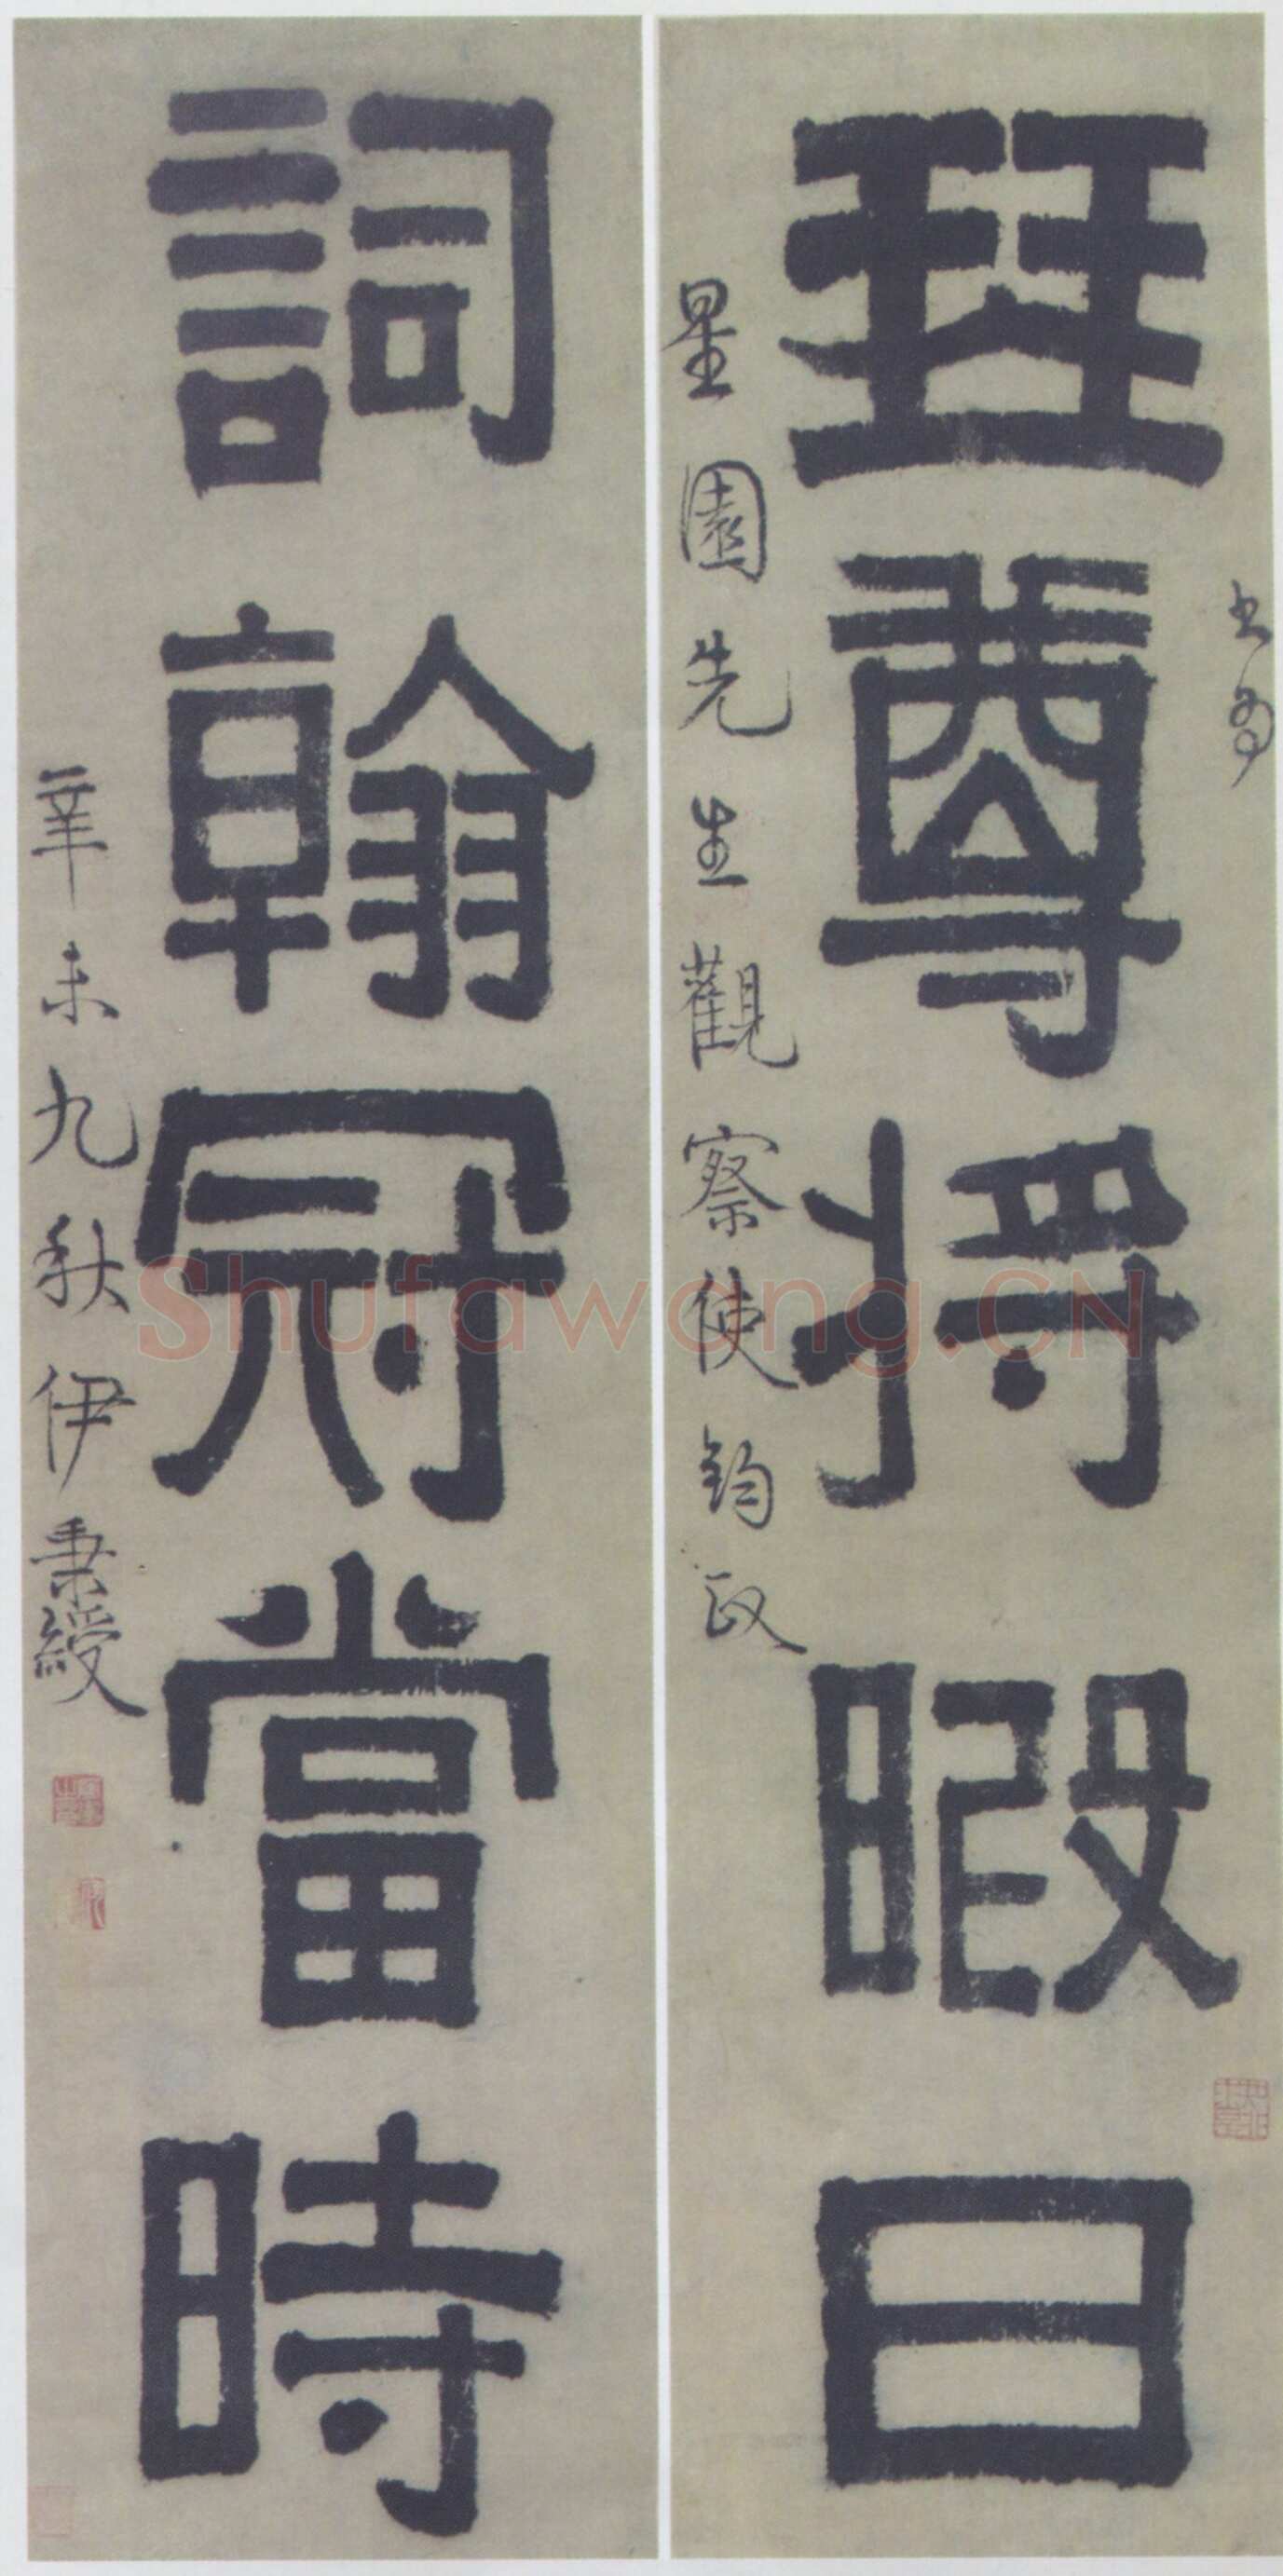 書為
琴尊將暇日
星園先生觀察使鈞政
詞翰冠當時
辛未九秋伊秉綬
Shufawang.CN